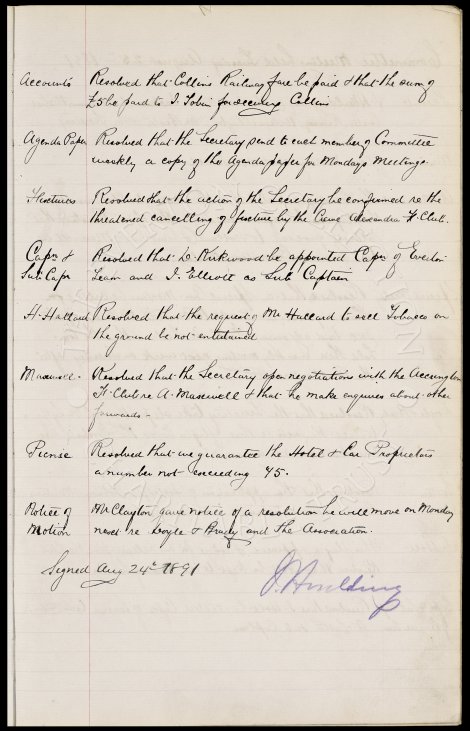 Accounts Resolved that Collins Railway fare be paid & that the sum of
£5 be paid to J. Tobin for securing Collins
Agenda Paper Resolved that the Secretary send to each member of Committee
weekly a copy of the Agenda paper for Mondays Meetings.
Fixtures Resolved that the action of the Secretary be confirmed re the
threatened cancelling of fixture by the Crewe Alexandra F. Club.
Capn & Resolved that D. Kirkwood be appointed Capn of Everton
Sub Capn Team and J. Elliott as Sub Captain
H. Hallard Resolved that the request of Mr Hallard to sell Tobacco on
the ground be not entertained
Maxwell - Resolved that the Secretary open negotiations with the Accrington
F. Club re A. Maxwell & that he make enquires about other
forwards -
Picnic Resolved that we guarantee the Hotel & Car Proprietors
a number not exceeding 45.
Notice of Mr Clayton gave notice of a resolution he will move on Monday
Motion next re Doyle & Brady and the Association.
Signed Aug 24th 1891
J. Houlding